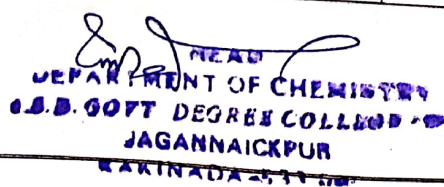 HEAD
DEPARTMENT OF CHEMISTRY
GOVT DEGREE COLLEGE
JAGANNAICKPUR
KAKINADA